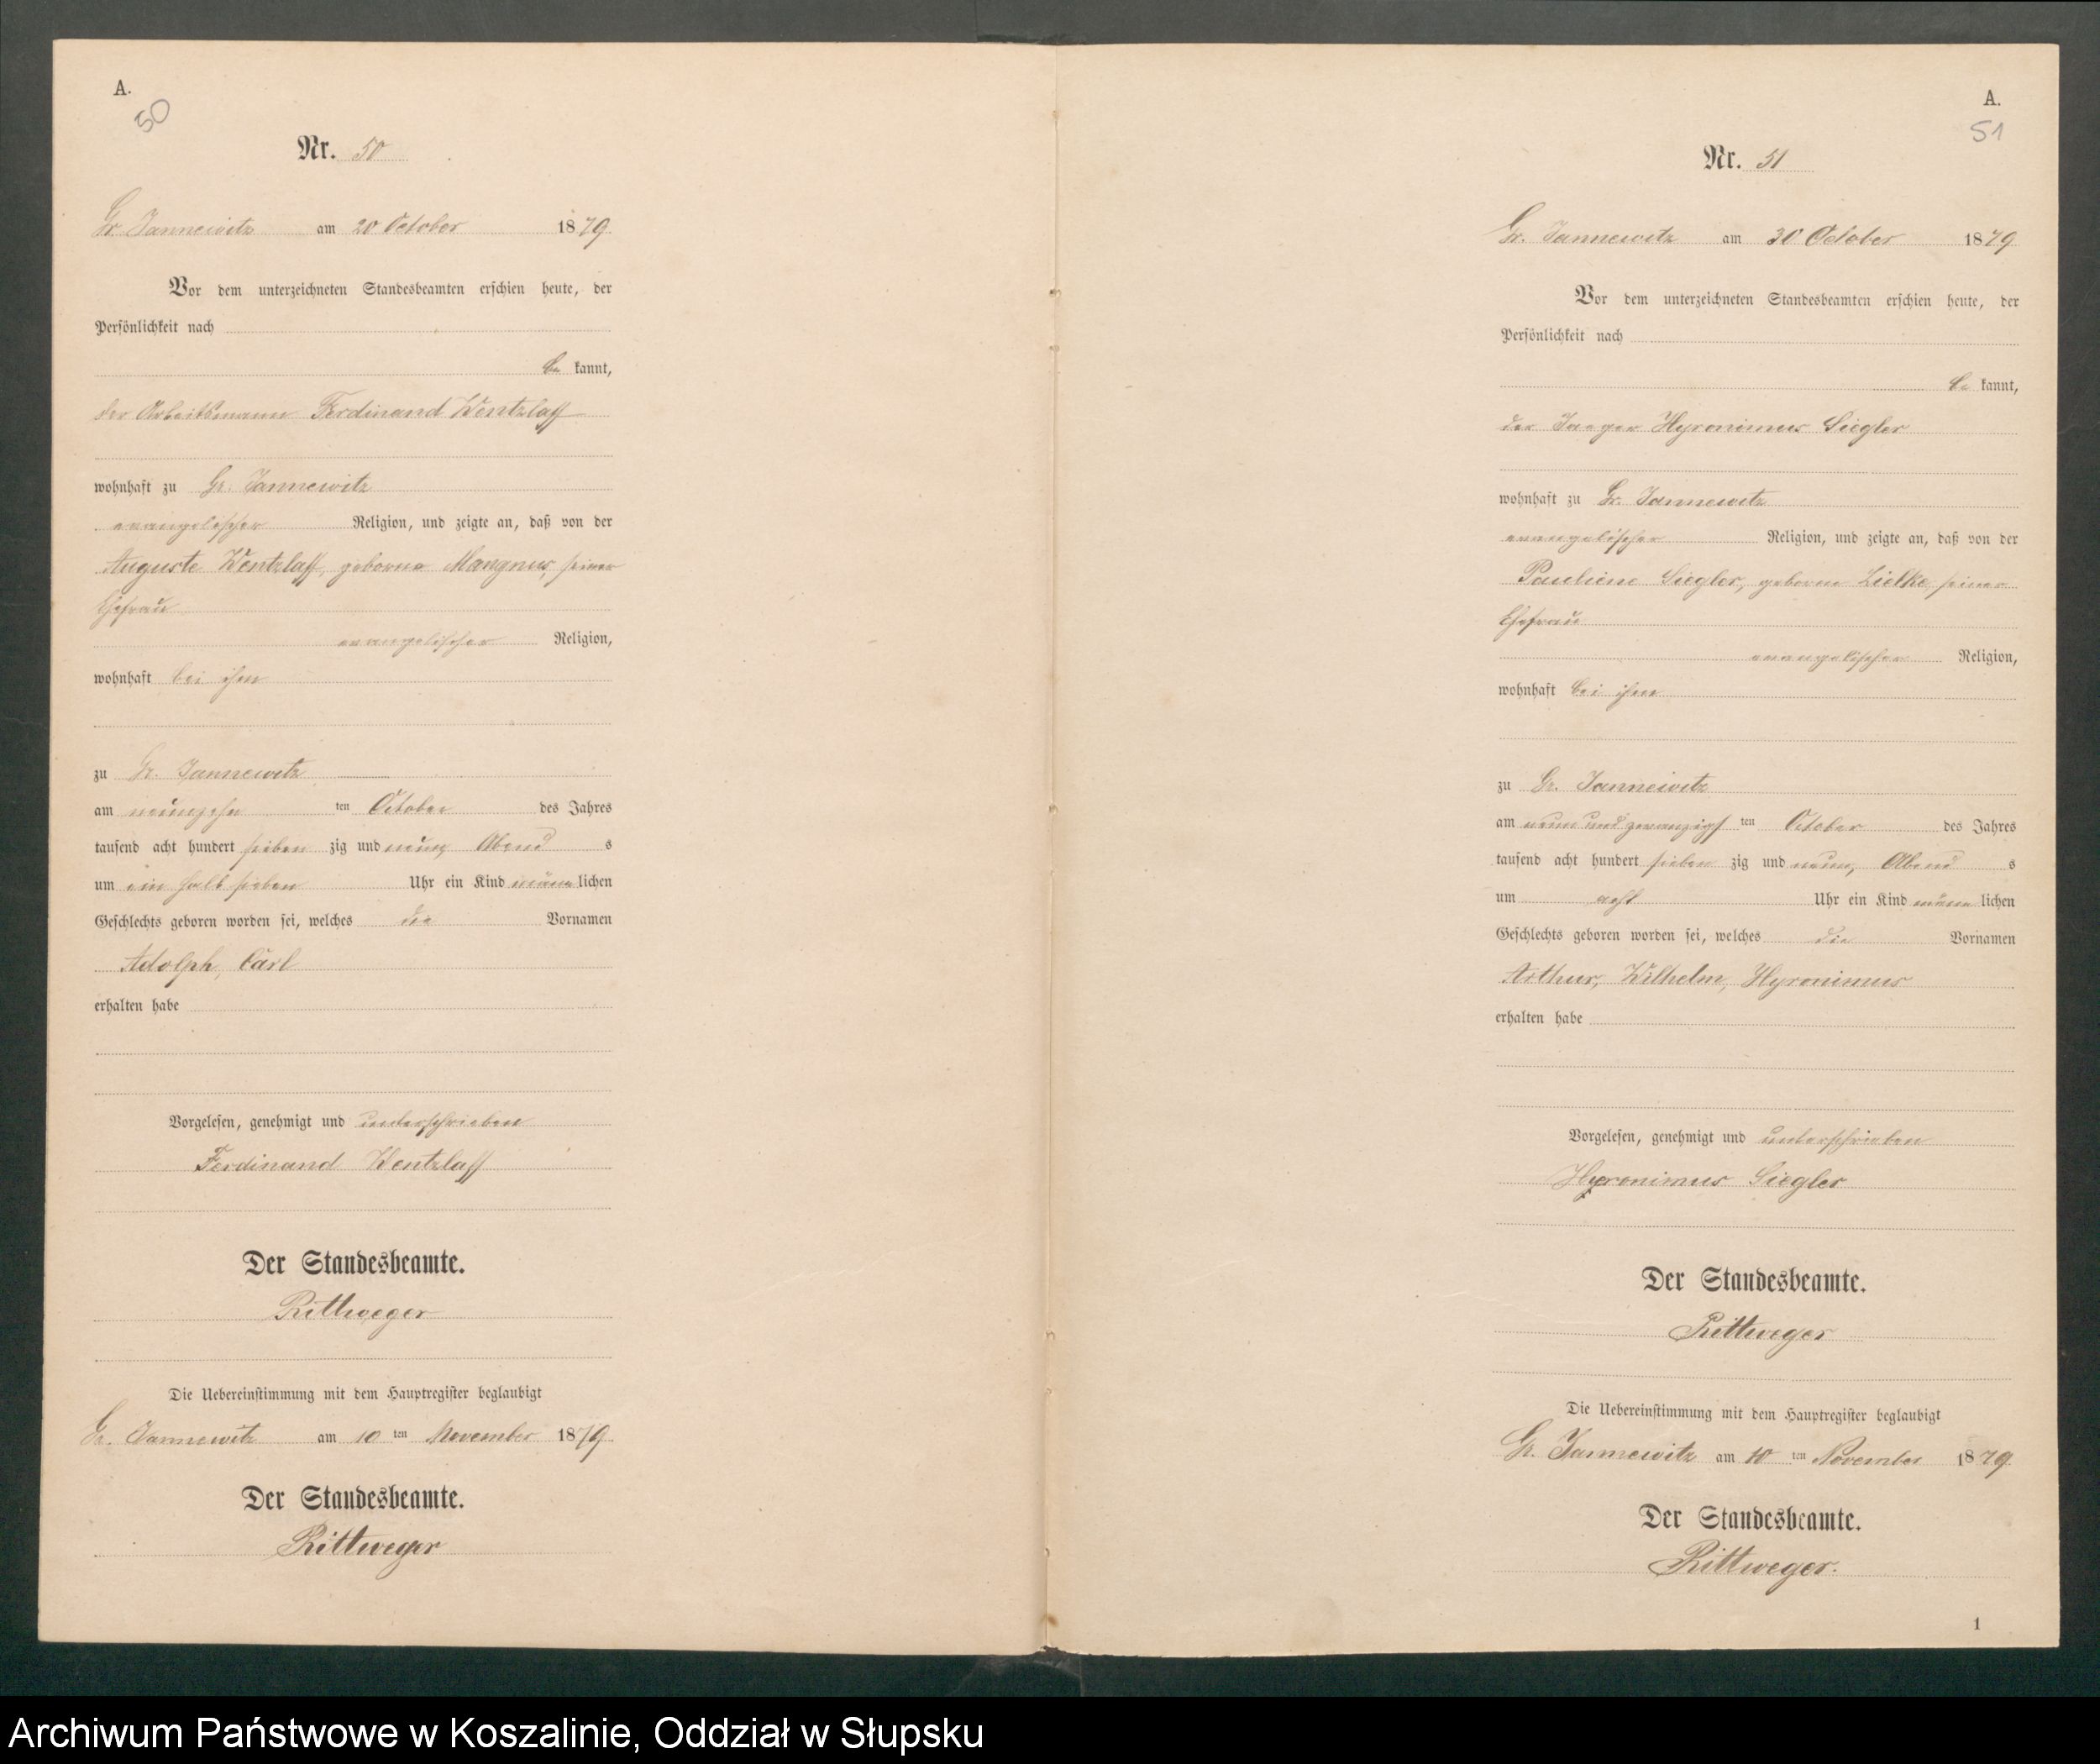 A.
50
Nr. 50
Gr. Jannewitz am 20 October 1879
Vor dem unterzeichneten Standesbeamten erschien heute, der
Persönlichkeit nach
be kannt,
der Arbeitsmann Ferdinand Wentzlaff
wohnhaft zu Gr. Jannewitz
evangelischer Religion, und zeigte an, daß von der
Auguste Wentzlaff, geborne Mangnus, seiner
Ehefrau
evangelischer Religion,
wohnhaft bei ihm
zu Gr. Jannewitz
am neunzehn ten October des Jahres
tausend acht hundert sieben zig und neun, Abend s
um ein halb sieben Uhr ein Kind männ lichen
Geschlechts geboren worden sei, welches die Vornamen
Adolph, Carl
erhalten habe
Vorgelesen, genehmigt und unterschrieben
Ferdinand Wentzlaff
Der Standesbeamte.
Rittweger
Die Uebereinstimmung mit dem Hauptregister beglaubigt
Gr. Jannewitz am 10 ten November 1879
Der Standesbeamte.
Rittweger
A.
51
Nr. 51
Gr. Jannewitz am 30 October 1879
Vor dem unterzeichneten Standesbeamten erschien heute, der
Persönlichkeit nach
be kannt,
der Jaeger Hyronimus Siegler
wohnhaft zu Gr. Jannewitz
evangelischer Religion, und zeigte an, daß von der
Pauliene Siegler, geborne Lielke, seiner
Ehefrau
evangelischer Religion,
wohnhaft bei ihm
zu Gr. Jannewitz
am neun und zwanzigs ten October des Jahres
tausend acht hundert sieben zig und neun, Abend s
um acht Uhr ein Kind männ lichen
Geschlechts geboren worden sei, welches die Vornamen
Arthur, Wilhelm, Hyronimus
erhalten habe
Vorgelesen, genehmigt und unterschrieben
Hyronimus Siegler
Der Standesbeamte.
Rittweger
Die Uebereinstimmung mit dem Hauptregister beglaubigt
Gr. Jannewitz am 10 ten November 1879
Der Standesbeamte.
Rittweger.
1
Archiwum Państwowe w Koszalinie, Oddział w Słupsku